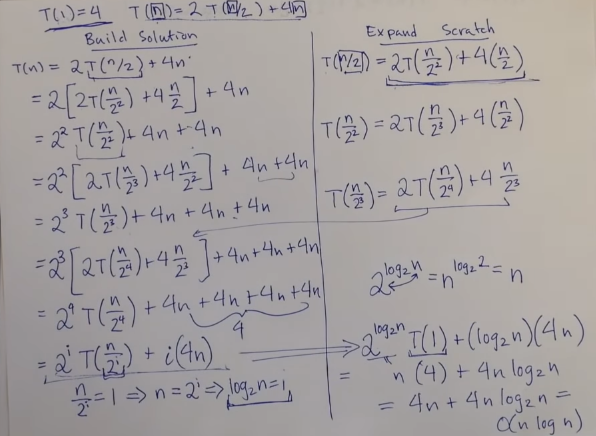 T(1)=4 T(n)=2T(n/2)+4n
Build Solution
T(n) = 2T(n/2) + 4n
= 2[2T(n/2²) + 4 n/2] + 4n
= 2² T(n/2²) + 4n + 4n
= 2² [2T(n/2³) + 4 n/2²] + 4n + 4n
= 2³ T(n/2³) + 4n + 4n + 4n
= 2³ [2T(n/2⁴) + 4 n/2³] + 4n + 4n + 4n
= 2⁴ T(n/2⁴) + 4n + 4n + 4n + 4n
4
= 2ⁱ T(n/2ⁱ) + i(4n)
n/2ⁱ = 1 ⇒ n = 2ⁱ ⇒ log₂n = i
Expand Scratch
T(n/2) = 2T(n/2²) + 4(n/2)
T(n/2²) = 2T(n/2³) + 4(n/2²)
T(n/2³) = 2T(n/2⁴) + 4 n/2³
2^(log₂n) = n^(log₂2) = n
2^(log₂n) T(1) + (log₂n)(4n)
= n(4) + 4n log₂n
= 4n + 4n log₂n =
O(n log n)